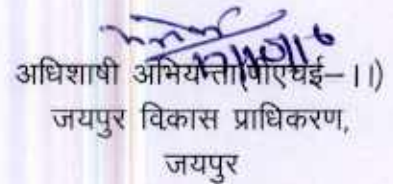 अधिशाषी अभियन्ता(पीएचई–।।)
जयपुर विकास प्राधिकरण,
जयपुर